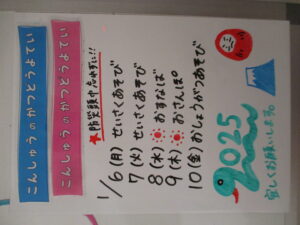 こんしゅうのかつどうよてい
こんしゅうのかつどうよてい
★防災頭巾忘れずに!!
1/6(月)せいさくあそび
7(火)せいさくあそび
8(水)おすなば
9(木)おさんぽ
10(金)おしょうがつあそび
2025
宜しくお願いします。